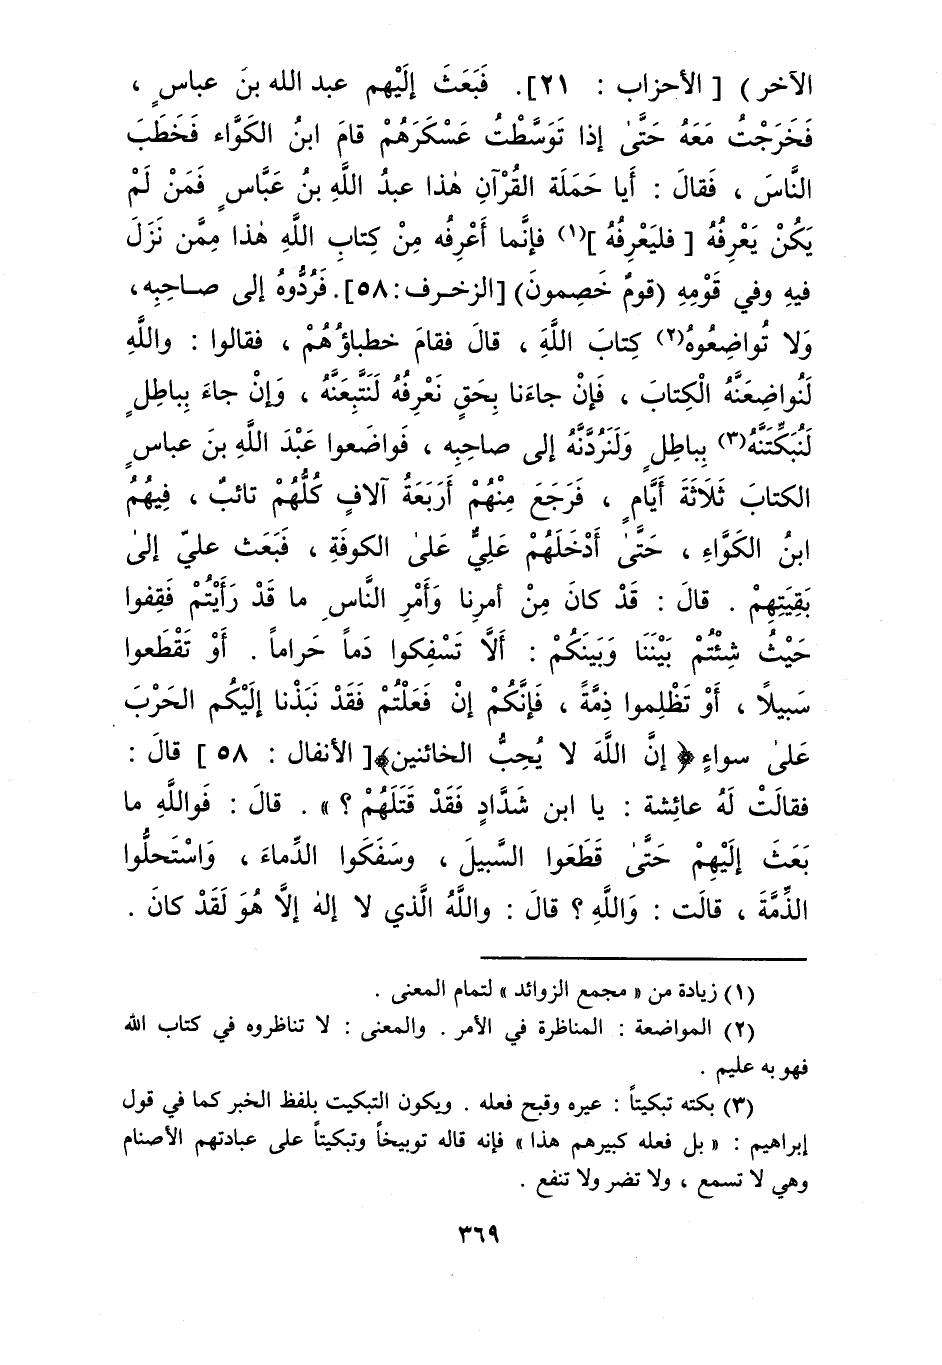 الآخر ) [ الأحزاب : ٢١] . فَبَعَثَ إِلَيْهم عبد الله بنَ عباسٍ ،
فَخَرَجْتُ مَعَهُ حَتَّىٰ إذا تَوَسَّطْتُ عَسْكَرَهُمْ قامَ ابنُ الكَوَّاء فَخَطَبَ
النَّاسَ ، فَقالَ : أَيا حَمَلَة القُرْآنِ هٰذا عبدُ اللَّهِ بنُ عَبَّاسٍ فَمَنْ لَمْ
يَكُنْ يَعْرِفُهُ [ فليَعْرِفُهُ ](١) فإنَّما أَعْرِفُه مِنْ كِتابِ اللَّهِ هٰذا مِمَّن نَزَلَ
فيهِ وفي قَوْمِهِ (قومٌ خَصِمونَ) [الزخرف: ٥٨]. فَرُدُّوهُ إلى صاحِبِه،
وَلا تُواضِعُوهُ(٢) كِتابَ اللَّهَ ، قالَ فقامَ خطباؤُهُمْ ، فقالوا : واللَّهِ
لَنُواضِعَنَّهُ الْكِتابَ ، فَإِنْ جاءَنا بِحَقٍ نَعْرِفُهُ لَنَتَّبِعَنَّهُ ، وَإِنْ جاءَ بِباطِلٍ
لَنُبَكِّتَنَّهُ(٣) بِباطِلٍ وَلَنَرُدَّنَّهُ إلى صاحِبِه ، فَواضَعوا عَبْدَ اللَّهِ بنَ عباسٍ
الكتابَ ثَلَاثَةَ أَيَّامٍ ، فَرَجَعَ مِنْهُمْ أَرْبَعَةُ آلافٍ كُلُّهُمْ تائبٌ ، فِيهُمُ
ابنُ الكَوَّاءِ ، حَتَّىٰ أَدْخَلَهُمْ عَلِيٌّ عَلىٰ الكوفَةِ ، فَبَعَث عليّ إلىٰ
بَقِيَتِهِمْ . قالَ : قَدْ كانَ مِنْ أمرِنا وَأَمْرِ النَّاسِ ما قَدْ رَأَيْتُمْ فَقِفوا
حَيْثُ شِئْتُمْ بَيْنَنَا وَبَينَكُمْ : أَلَّا تَسْفِكوا دَماً حَراماً . أَوْ تَقْطَعوا
سَبيلًا ، أَوْ تَظْلِموا ذِمَّةً ، فَإِنَّكُمْ إنْ فَعَلْتُمْ فَقَدْ نَبَذْنا إلَيْكُم الحَرْبَ
عَلىٰ سواءٍ ﴿ إنَّ اللَّهَ لا يُحِبُّ الخائنين﴾[ الأنفال : ٥٨ ] قالَ :
فقالَتْ لَهُ عائِشة : يا ابن شَدَّادٍ فَقَدْ قَتَلَهُمْ ؟ » . قالَ : فَواللَّهِ ما
بَعَثَ إلَيْهِمْ حَتَّىٰ قَطَعُوا السَّبيلَ ، وسَفَكوا الدِّماءَ ، وَاسْتَحلُّوا
الذِّمَّةَ ، قالَت : وَاللَّهِ ؟ قالَ : واللَّهُ الَّذي لا إلهٰ إلَّا هُوَ لَقَدْ كانَ .
(١) زيادة من « مجمع الزوائد » لتمام المعنى .
(٢) المواضعة : المناظرة في الأمر . والمعنى : لا تناظروه في كتاب الله
فهو به عليم .
(٣) بكته تبكيتاً : عيره وقبح فعله . ويكون التبكيت بلفظ الخبر كما في قول
إبراهيم : « بل فعله كبيرهم هذا » فإنه قاله توبيخاً وتبكيتاً على عبادتهم الأصنام
وهي لا تسمع ، ولا تضر ولا تنفع .
٣٦٩